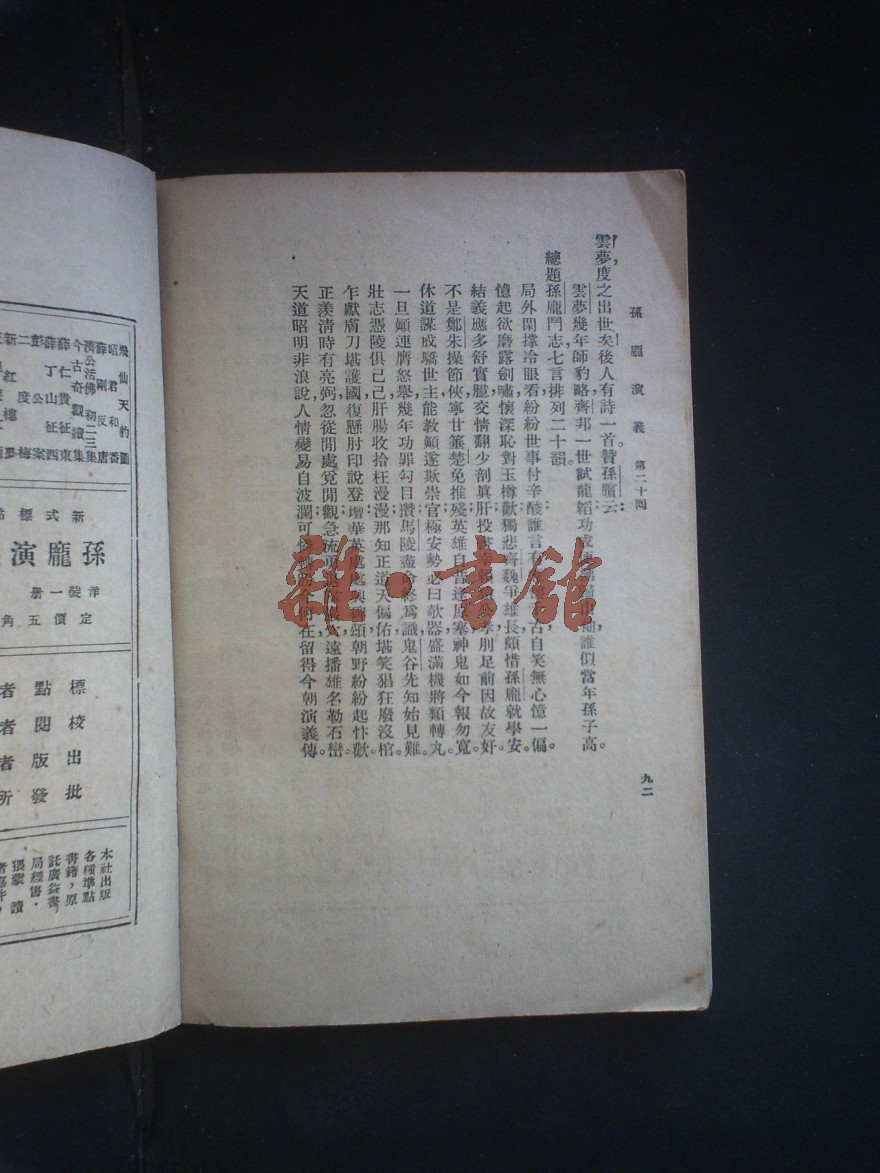 孫龐演義 第二十四
九二
雲夢度之出世矣後人有詩一首贊孫臏云
雲夢幾年師豹略齊邦一世試龍韜功成 誰似當年孫子高。
總題孫龐鬥志七言排列二十韻。
局外閑撐冷眼看紛紛世事付辛酸誰言有 古自笑無心憶一偏
憶起欲磨露劍嘯懷深恥對玉樽歡獨悲齊魏爭雄長頗惜孫龐就學安
結義應多舒實臆交情翻少剖眞肝投 刖足前因故友奸
不是鄭朱操節俠寧甘箠楚免推殘英雄自昔逢 塞神鬼如今報勿寬
休道謀成驕世主能教顛遂欺崇官極安勢必曰欹器盛滿機將類轉丸
一旦顛連膺怒舉幾年功罪勾目讚馬陵 爲識鬼谷先知始見難
壯志憑陵俱己己肝腸收拾枉漫漫那知正道天偏佑堪笑猖狂廢沒棺
乍獻廣刀塔護國復懸肘印說登壇華英處處 頌朝野紛紛起忭歡
正羨清時有亮弼忽從閒處覓閒觀急流勇退 遠播雄名勒石巒
天道昭明非浪說人情變易自波瀾可憐 今何在留得今朝演義傳
雜·書館
飛仙天豹圖
昭君和番
薛剛反唐
濟公活佛初二三集
今古奇觀續集
薛仁貴征東
薛丁山征西
彭公案
二度梅
新紅樓夢
新式標點
孫龐演
洋裝一册
定價五角
標點者
校閱者
出版者
批發所
本社出版
各種標點
書籍，原
託廣益書
局經售。
猥蒙讀